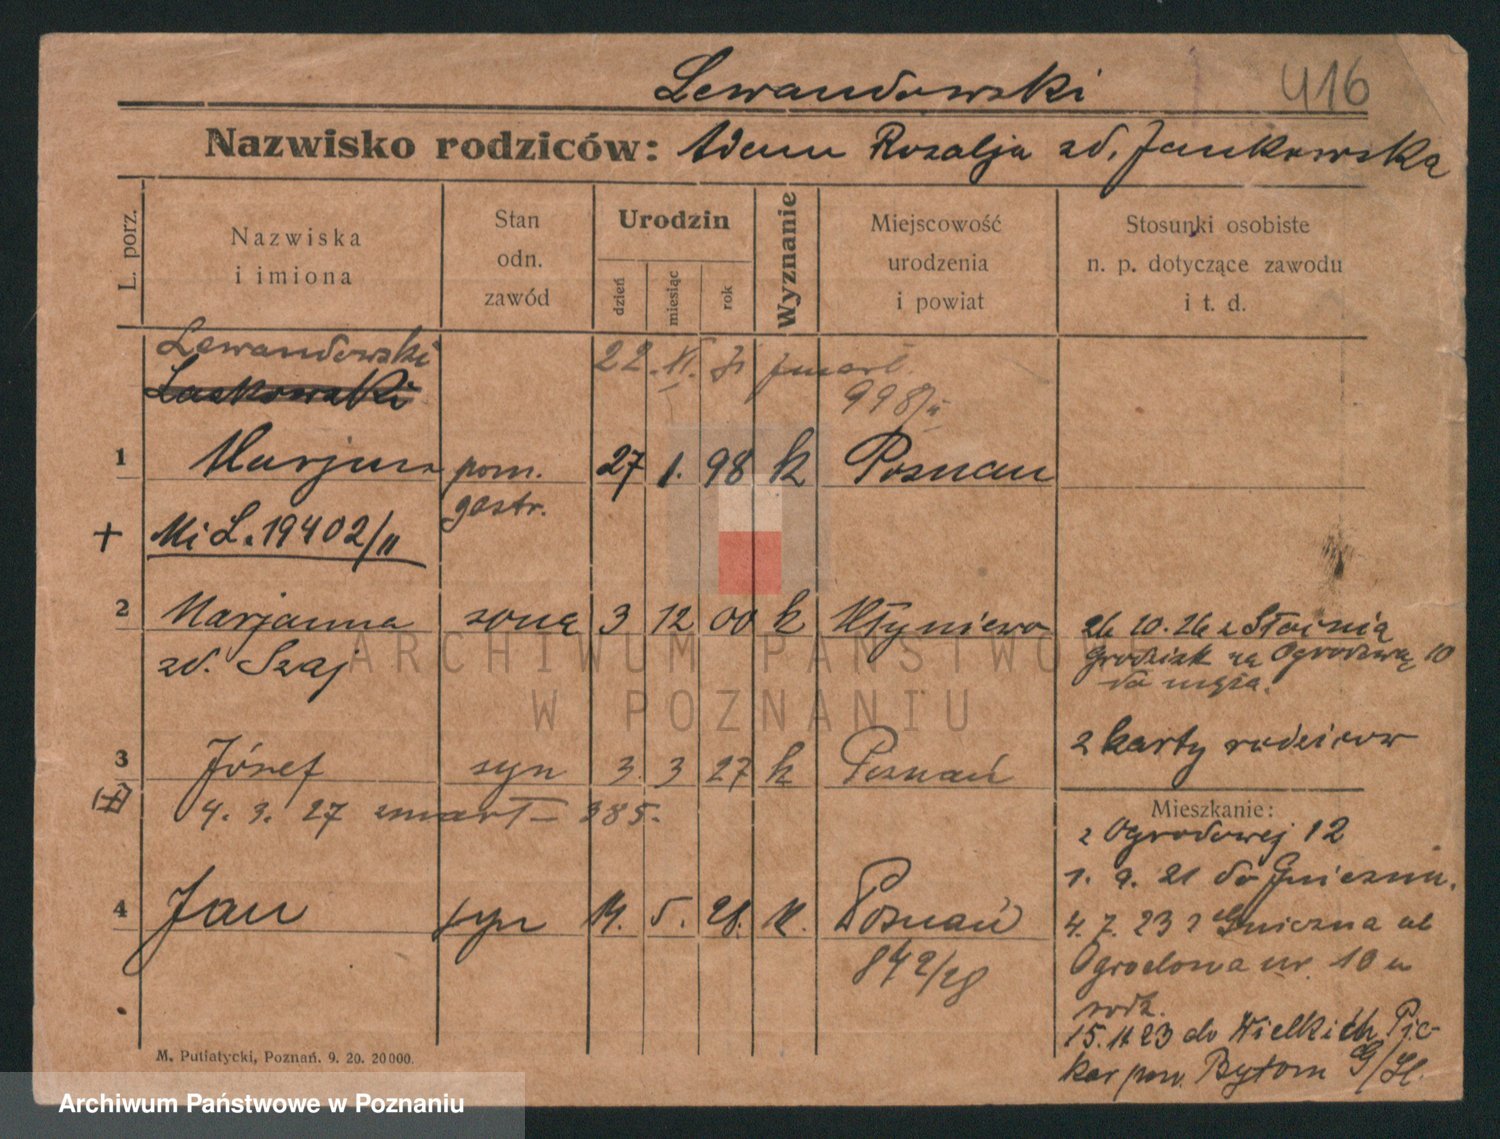 Lewandowski
416
Nazwisko rodziców: Adam Rozalja zd. Jankowska
L. porz.
Nazwiska
i imiona
Stan
odn.
zawód
Urodzin
dzień
miesiąc
rok
Wyznanie
Miejscowość
urodzenia
i powiat
Stosunki osobiste
n. p. dotyczące zawodu
i t. d.
Lewandowski
22. XI. 31 zmarł.
Laskowski
998/II
1 Marjan pom. 27 1. 98 k Poznań
gastr.
+ Mi L. 19402/II
2 Marjanna żona 3 12 00 k Kłyniewo
zd. Szaj
26 10. 26 z Słoinią
Grodzisk na Ogrodową 10
do męża.
2 karty rodziców
3 Józef syn 3. 3 27 k Poznań
(+) 4. 3. 27 zmarł – 385.
Mieszkanie:
z Ogrodowej 12
1. 9. 21 do Gniezna.
4 Jan syn 14. 5. 28. k. Poznań
842/28
4. 7. 23 z Gniezna ul
Ogrodowa nr. 10 u
rodz.
15. 11 23 do Wielkich Pie-
kar pow. Bytom G/Śl.
M. Putiatycki, Poznań. 9. 20. 20000.
ARCHIWUM PAŃSTWOWE
W POZNANIU
Archiwum Państwowe w Poznaniu